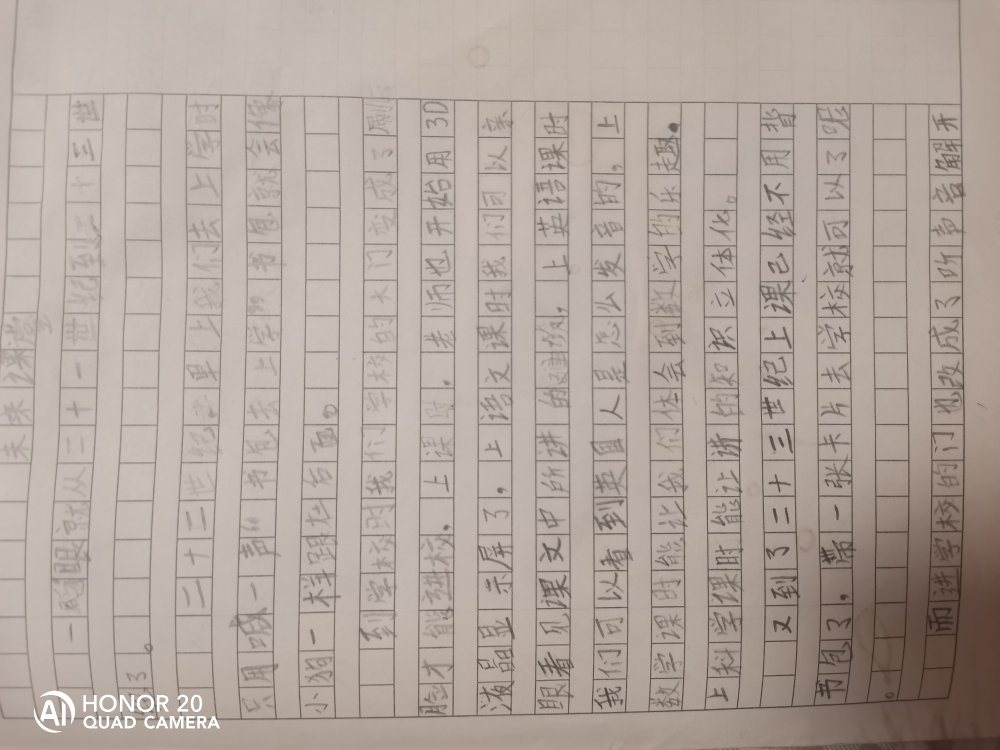 未来课堂
一眨眼就从二十一世纪到二十三世
3。
二十二世纪里上我们去上学时
只用喊一声“书包去上学”书包就会像
小狗一样跟在后面。
到学校时我们学校的大门变成了刷
脸才能进校，上课时，老师也开始用3D
液晶显示屏了。上语文课时我们可以亲
眼看见课文中所讲的，上英语课时
我们可以看到英国人是怎么发音的，上
数学课时能让我们体会到数学的乐趣。
上科学课时能让讲的知识立体化。
又到了二十三世纪上课已经不用背
书包了，带一张卡片去学校就可以了呢
。
而进学校的门也改成了听声音解开
HONOR 20
QUAD CAMERA